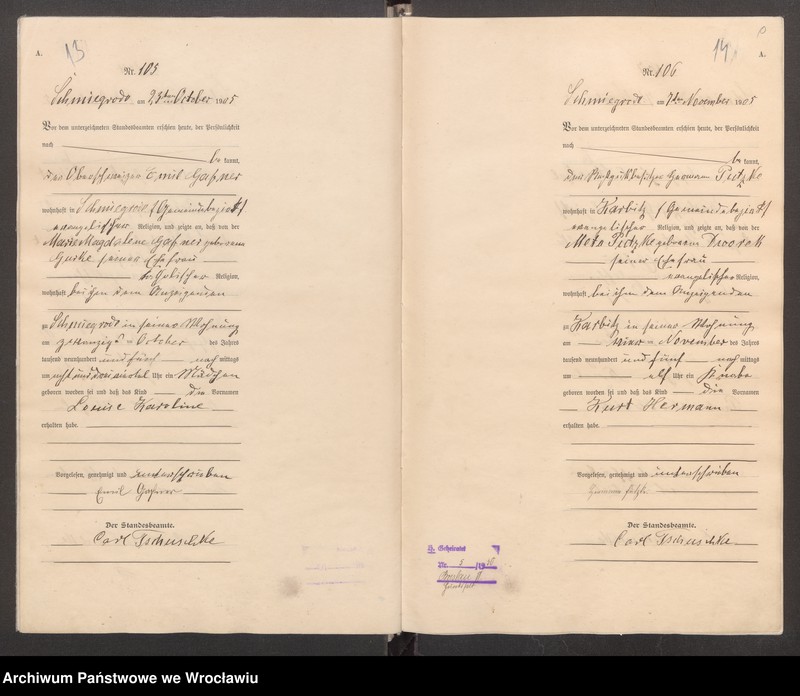 13
A.
Nr. 105
Schmiegrode am 23ten October 1905
Vor dem unterzeichneten Standesbeamten erschien heute, der Persönlichkeit
nach
be kannt,
der Oberschweizer Emil Gaßner
wohnhaft in Schmiegrode (Gemeindebezirk)
evangelischer Religion, und zeigte an, daß von der
Marie Magdalene Gaßner geborenen
seiner Ehefrau
Religion,
wohnhaft bei ihm dem Anzeigenden
zu Schmiegrode in seiner Wohnung
am October des Jahres
tausend neunhundert und fünf nach mittags
um acht und Uhr ein Mädchen
geboren worden sei und daß das Kind die Vornamen
Louise Karoline
erhalten habe.
Vorgelesen, genehmigt und unterschrieben
Emil Gaßner
Der Standesbeamte.
Carl Tschuschke
14
A.
Nr. 106
Schmiegrode am 7ten November 1905
Vor dem unterzeichneten Standesbeamten erschien heute, der Persönlichkeit
nach
be kannt,
der Hermann Pietzke
wohnhaft in Karbitz (Gemeindebezirk)
evangelischer Religion, und zeigte an, daß von der
geborenen
seiner Ehefrau
evangelischer Religion,
wohnhaft bei ihm dem Anzeigenden
zu Karbitz in seiner Wohnung
am November des Jahres
tausend neunhundert und fünf nach mittags
um elf Uhr ein Knabe
geboren worden sei und daß das Kind die Vornamen
Kurt Hermann
erhalten habe.
Vorgelesen, genehmigt und unterschrieben
Der Standesbeamte.
Carl Tschuschke
Nr. 5
Archiwum Państwowe we Wrocławiu